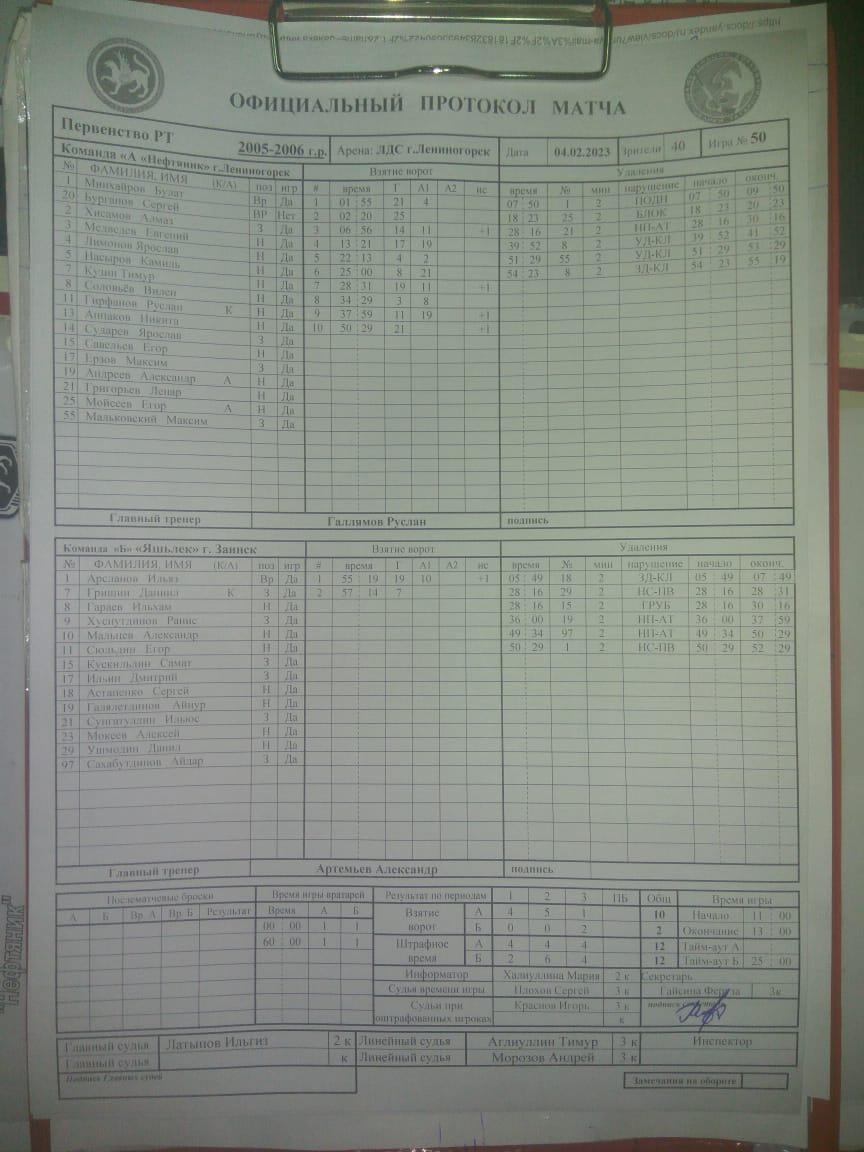 ОФИЦИАЛЬНЫЙ ПРОТОКОЛ МАТЧА
Первенство РТ 2005-2006 г.р. Арена: ЛДС г.Лениногорск Дата 04.02.2023 Зрители 40 Игра № 50
Команда «А «Нефтяник» г.Лениногорск Взятие ворот Удаления
№ ФАМИЛИЯ, ИМЯ (К/А) поз игр # время Г А1 А2 ис время № мин нарушение начало оконч.
1 Минхайров Булат Вр Да 1 01 55 21 4 07 50 1 2 ПОДН 07 50 09 50
20 Бурганов Сергей ВР Нет 2 02 20 25 18 23 25 2 БЛОК 18 23 20 23
2 Хисамов Алмаз З Да 3 06 56 14 11 +1 28 16 21 2 НП-АТ 28 16 30 16
3 Медведев Евгений Н Да 4 13 21 17 19 39 52 8 2 УД-КЛ 39 52 41 52
4 Лимонов Ярослав Н Да 5 22 13 4 2 51 29 55 2 УД-КЛ 51 29 53 29
5 Насыров Камиль Н Да 6 25 00 8 21 54 23 8 2 ЗД-КЛ 54 23 55 19
7 Кузин Тимур Н Да 7 28 31 19 11 +1
8 Соловьёв Вилен Н Да 8 34 29 3 8
11 Гирфанов Руслан К Н Да 9 37 59 11 19 +1
13 Аппаков Никита Н Да 10 50 29 21 +1
14 Сударев Ярослав З Да
15 Савельев Егор Н Да
17 Ерзов Максим З Да
19 Андреев Александр А Н Да
21 Григорьев Ленар Н Да
25 Мойсеев Егор А Н Да
55 Мальковский Максим З Да
Главный тренер Галлямов Руслан подпись
Команда «Б» «Яшьлек» г. Заинск Взятие ворот Удаления
№ ФАМИЛИЯ, ИМЯ (К/А) поз игр # время Г А1 А2 ис время № мин нарушение начало оконч.
1 Арсланов Ильяз Вр Да 1 55 19 19 10 +1 05 49 18 2 ЗД-КЛ 05 49 07 49
7 Гришин Даниил К З Да 2 57 14 7 28 16 29 2 НС-ПВ 28 16 28 31
8 Гараев Ильхам Н Да 28 16 15 2 ГРУБ 28 16 30 16
9 Хуснутдинов Ранис З Да 36 00 19 2 НП-АТ 36 00 37 59
10 Мальцев Александр Н Да 49 34 97 2 НП-АТ 49 34 50 29
11 Сюльдин Егор Н Да 50 29 1 2 НС-ПВ 50 29 52 29
15 Кускильдин Самат З Да
17 Ильин Дмитрий З Да
18 Астапенко Сергей Н Да
19 Галялетдинов Айнур Н Да
21 Сунгатуллин Ильюс З Да
23 Мокеев Алексей Н Да
29 Ушмодин Данил Н Да
97 Сахабутдинов Айдар З Да
Главный тренер Артемьев Александр подпись
Послематчевые броски Время игры вратарей Результат по периодам 1 2 3 ПБ Общ Время игры
А Б Вр А Вр Б Результат Время А Б Взятие ворот А 4 5 1 10 Начало 11 00
00 00 1 1 Б 0 0 2 2 Окончание 13 00
60 00 1 1 Штрафное время А 4 4 4 12 Тайм-аут А
Б 2 6 4 12 Тайм-аут Б 25 00
Информатор Халиуллина Мария 2 к Секретарь
Судья времени игры Плохов Сергей 3 к Гайсина Фируза 3к
Судьи при оштрафованных игроках Краснов Игорь 3 к
к
Главный судья Латыпов Ильгиз 2 к Линейный судья Аглиуллин Тимур 3 к Инспектор
Главный судья к Линейный судья Морозов Андрей 3 к
Подпись Главных судей
Замечания на обороте
"Нефтяник"